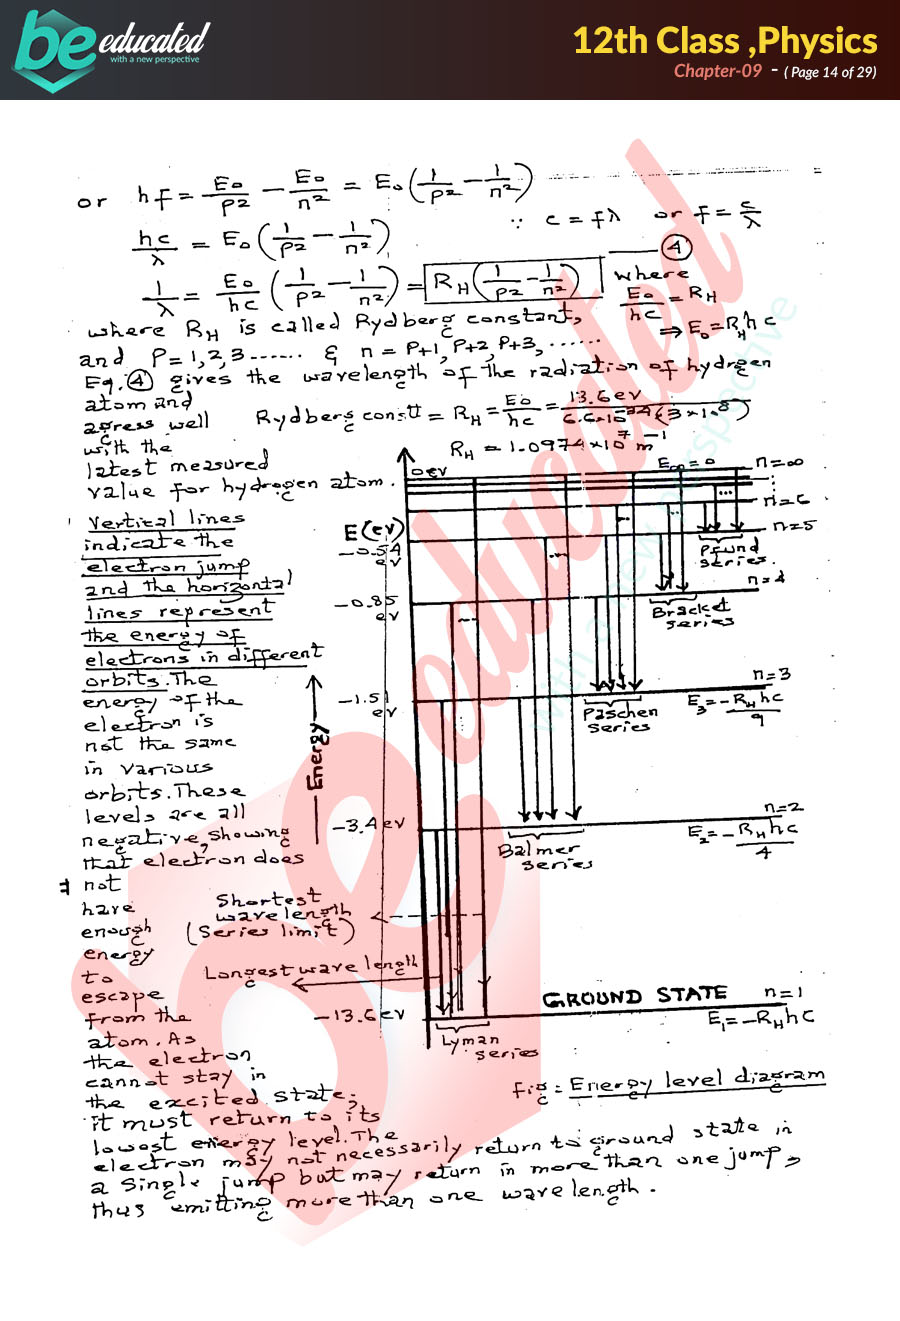 be educated
with a new perspective
12th Class ,Physics
Chapter-09 - ( Page 14 of 29)
or hf = E₀/P² − E₀/n² = E₀(1/P² − 1/n²)
hc/λ = E₀(1/P² − 1/n²) ∵ c = fλ or f = c/λ
1/λ = E₀/hc (1/P² − 1/n²) = R_H(1/P² − 1/n²) ④ where
E₀/hc = R_H
where R_H is called Rydberg constant, ⇒ E₀ = R_H hc
and P = 1,2,3------ & n = P+1, P+2, P+3, ------
Eq. ④ gives the wavelength of the radiation of hydrogen
atom and
agress well
with the
latest measured
value for hydrogen atom.
Rydberg constt = R_H = E₀/hc = 13.6ev
R_H = 1.0974×10⁷ m⁻¹
Vertical lines
indicate the
electron jump
and the horizontal
lines represent
the energy of
electrons in different
orbits. The
energy of the
electron is
not the same
in various
orbits. These
levels are all
negative, showing
that electron does
not
have
enough
energy
to
escape
from the
atom. As
the electron
cannot stay in
the excited state,
it must return to its
lowest energy level. The
electron may not necessarily return to ground state in
a single jump but may return in more than one jump,
thus emitting more than one wavelength.
0ev
E∞ = 0
n=∞
n=6
n=5
E(ev)
−0.54
ev
Pfund
series.
n=4
−0.85
ev
Bracket
series
n=3
−1.51
ev
Paschen
series
E₃ = −R_H hc/9
Energy
n=2
−3.4ev
E₂ = −R_H hc/4
Balmer
series
Shortest
wavelength
(Series limit)
Longest wavelength
GROUND STATE
n=1
−13.6ev
E₁ = −R_H hc
Lyman
series
fig = Energy level diagram
be educated
with a new perspective